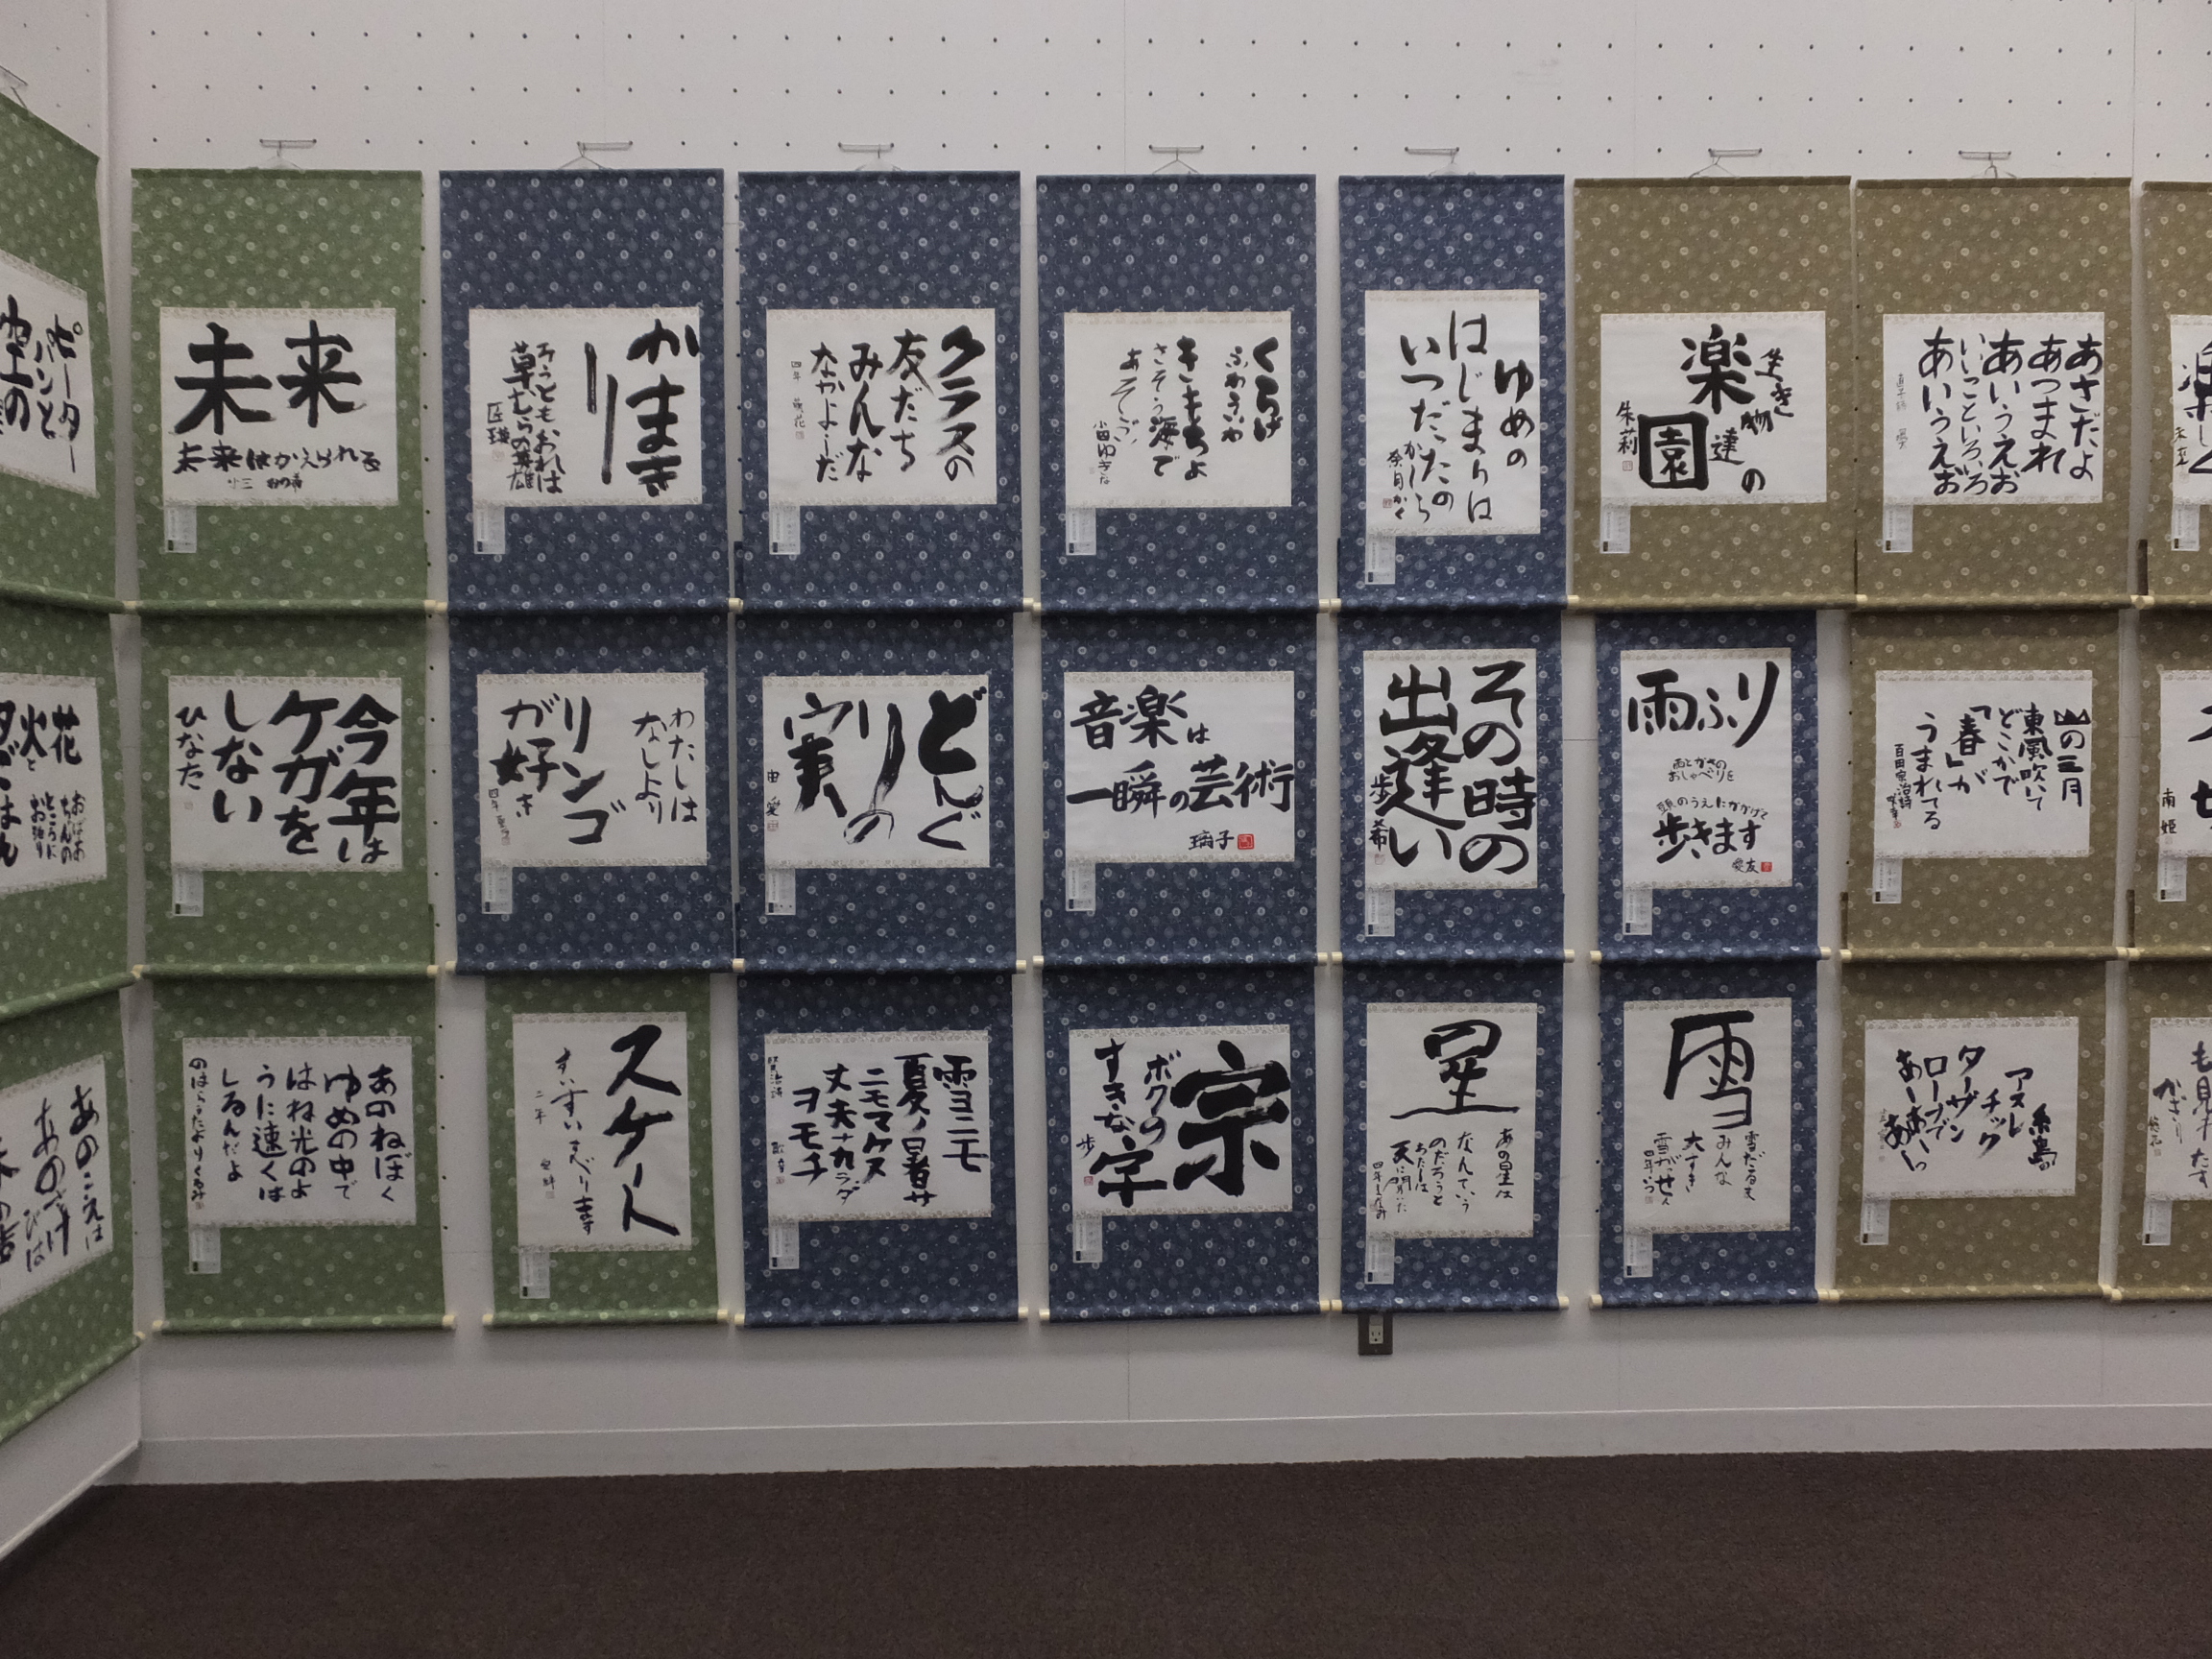 ピーター
パンと
空の
未来
未来はかえられる
かまき
り
草むらの英雄
クラスの
友だち
みんな
なかよしだ
四年
くらげ
ふわふわ
きもちよ
さそう海で
ゆめの
はじまりは
いつだったの
かしら
生き
物
達
の
楽
園
朱莉
あさだよ
あつまれ
あいうえお
いいこといろいろ
あいうえお
花
火と
おばあ
ちゃんの
ところに
お泊り
今年は
ケガを
しない
ひなた
わたしは
なしより
リンゴ
が好き
四年
どんぐ
りの
実
由愛
音楽は
一瞬の芸術
璃子
その時の
出逢い
歩希
雨ふり
雨とかさの
おしゃべりを
頭のうえにかかげて
歩きます
愛友
山の三月
東風吹いて
どこかで
「春」が
うまれてる
百田宗治詩
南姫
あのこえは
あのねぼく
ゆめの中で
はね光のよ
うに速くは
しるんだよ
のはらうたより くるみ
スケート
すいすいすべります
二年
雪ニモ
夏ノ暑サ
ニモマケヌ
丈夫ナカラダ
ヲモチ
賢治詩
宗
ボクの
すきな字
歩
星
あの星は
なんていう
のだろうと
わたしは
天に聞いた
雪
雪だるま
みんな
大すき
糸島
アスレ
チック
ターザン
ロープで
あーああーっ